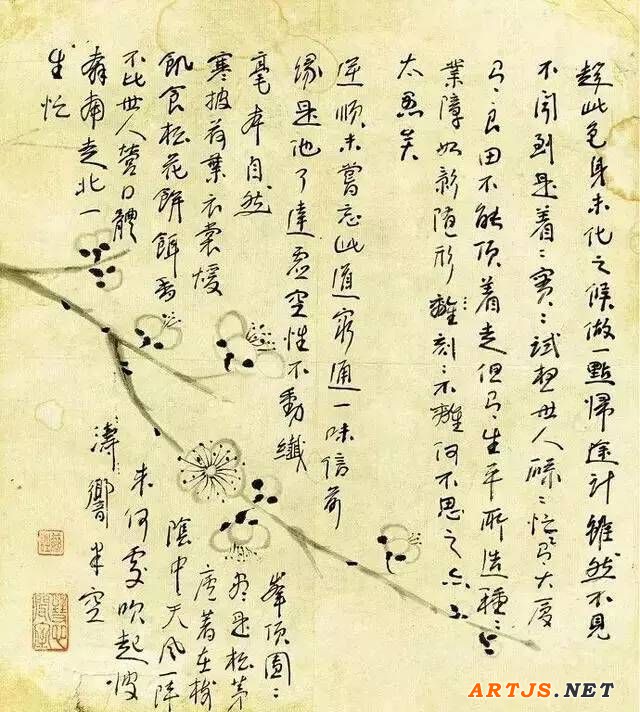 趁此色身未化之候做一點歸途計雖然不見
不聞到是着〻實〻試想世人碌〻忙〻大廈
良田不能頂着走但生平所造種〻
業障如影随形刻〻何不思之
太愚矣
逆順未嘗忘此道窮通一味信前
緣是他了達虛空性不動纖
毫本自然
寒披荷葉衣裳煖
飢食松花餅餌香
不比世人營口體
奔南走北一
生忙
峯頂團〻
是松茅
著在
陰中天風一陣
來何處吹起波
濤響半空
ARTJS.NET